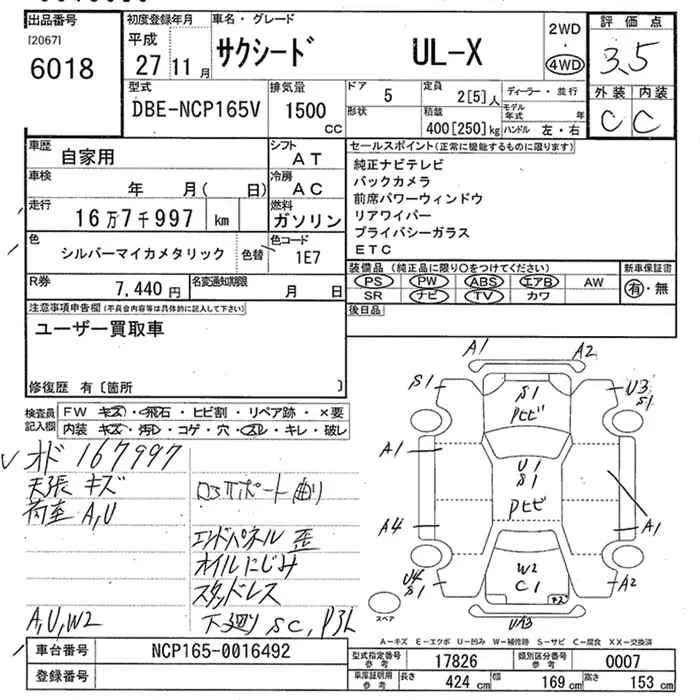 出品番号
[2067]
6018
初度登録年月
平成
27 11 月
車名・グレード
サクシード UL-X
2WD
・
4WD
評価点
3.5
外装 内装
C C
型式
DBE-NCP165V
排気量
1500 CC
ドア 5
形状
定員 2[5]人
積装 400[250]kg
ディーラー・並行
モデル年式 年
ハンドル 左・右
車歴 自家用
シフト AT
車検 年 月( 日)
冷房 AC
走行 16万7千997 km
燃料 ガソリン
色 シルバーマイカメタリック 色替
色コード 1E7
R券 7,440 円
名変通知期限 月 日
セールスポイント(正常に機能するものに限ります)
純正ナビテレビ
バックカメラ
前席パワーウィンドウ
リアワイパー
プライバシーガラス
ETC
装備品(純正品に限り○をつけてください)
PS PW ABS エアB AW
SR ナビ TV カワ
新車保証書
有・無
後日品
注意事項申告欄(不具合内容等は具体的に記入して下さい)
ユーザー買取車
修復歴 有〔箇所 〕
検査員記入欄
FW キズ・飛石・ヒビ割・リペア跡・×要
内装 キズ・汚レ・コゲ・穴・スレ・キレ・破レ
オド 167997
天張 キズ
荷室 A,U
A,U,W2
ロアサポート曲り
エンドパネル 歪
オイルにじみ
スタッドレス
下廻り SC,
A1 A2
S1 S1 U3 S1
Pヒビ
A1
U1
S1
Pヒビ
A4 A1
W2
C1
U4 S1 A2
スペア
A-キズ E-エクボ U-凹み W-補修跡 S-サビ C-腐食 XX-交換済
車台番号 NCP165-0016492
登録番号
型式指定番号 参考 17826
類別区分番号 参考 0007
車庫証明用 参考
長さ 424 cm 幅 169 cm 高さ 153 cm